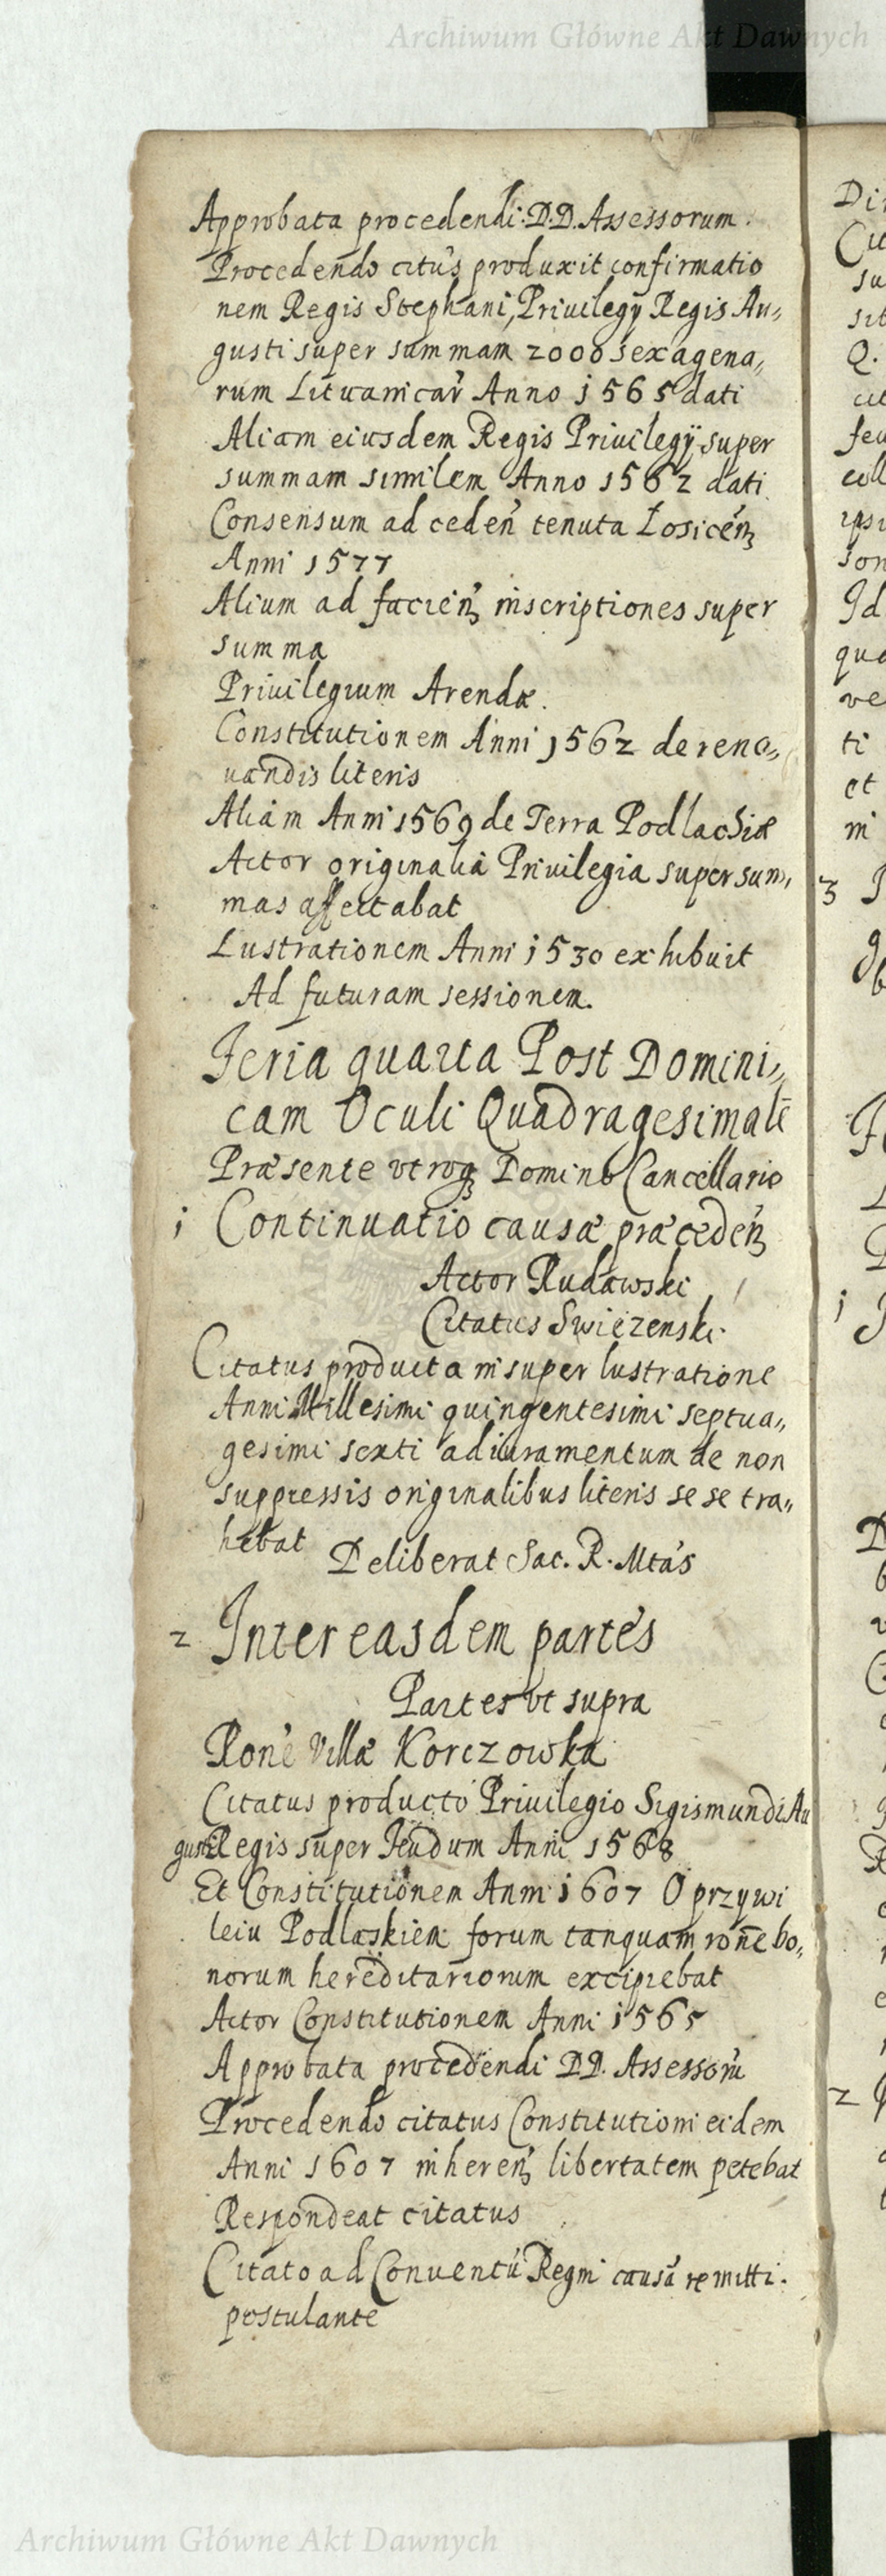 Archiwum Główne Akt Dawnych
Approbata procedendi. D.D. Assessorum.
Procedendo citus produxit confirmatio
nem Regis Stephani, Priuilegÿ Regis Au„
gusti super summam 2000 sexagena„
rum Lituanicar Anno 1565 dati
Aliam eiusdem Regis Priuilegÿ super
summam similem Anno 1562 dati
Consensum ad ceden tenuta Łosicen
Anni 1577
Alium ad facien inscriptiones super
summa
Priuilegium Arendæ.
Constitutionem Anni 1562 de reno„
uandis literis
Aliam Anni 1569 de Terra Podlachiæ
Actor originalia Priuilegia super sum„
mas affectabat
Lustrationem Anni 1530 exhibuit
Ad futuram sessionem.
Feria quarta Post Domini„
cam Oculi Quadragesimale
Præsente utroq Domino Cancellario
1 Continuatio causæ præceden
Actor Rudawski
Citatus Swiezenski
Citatus producta insuper lustratione
Anni Millesimi quingentesimi septua„
gesimi sexti ad iuramentum de non
suppressis originalibus literis se se tra„
hebat
Deliberat Sac. R. Mtas
2 Inter easdem partes
Partes ut supra
Rone Villæ Korczowka
Citatus producto Priuilegio Sigismundi Au
gusti Regis super feudum Anni 1568
Et Constitutionem Anni 1607 O przywi
leiu Podlaskiem forum tanquam rone bo„
norum hereditariorum excipiebat
Actor Constitutionem Anni 1565
Approbata procedendi DD. Assessorū
Procedendo citatus Constitutioni eidem
Anni 1607 inheren libertatem petebat
Respondeat citatus
Citato ad Conuentū Regni causā remitti.
postulante
Archiwum Główne Akt Dawnych